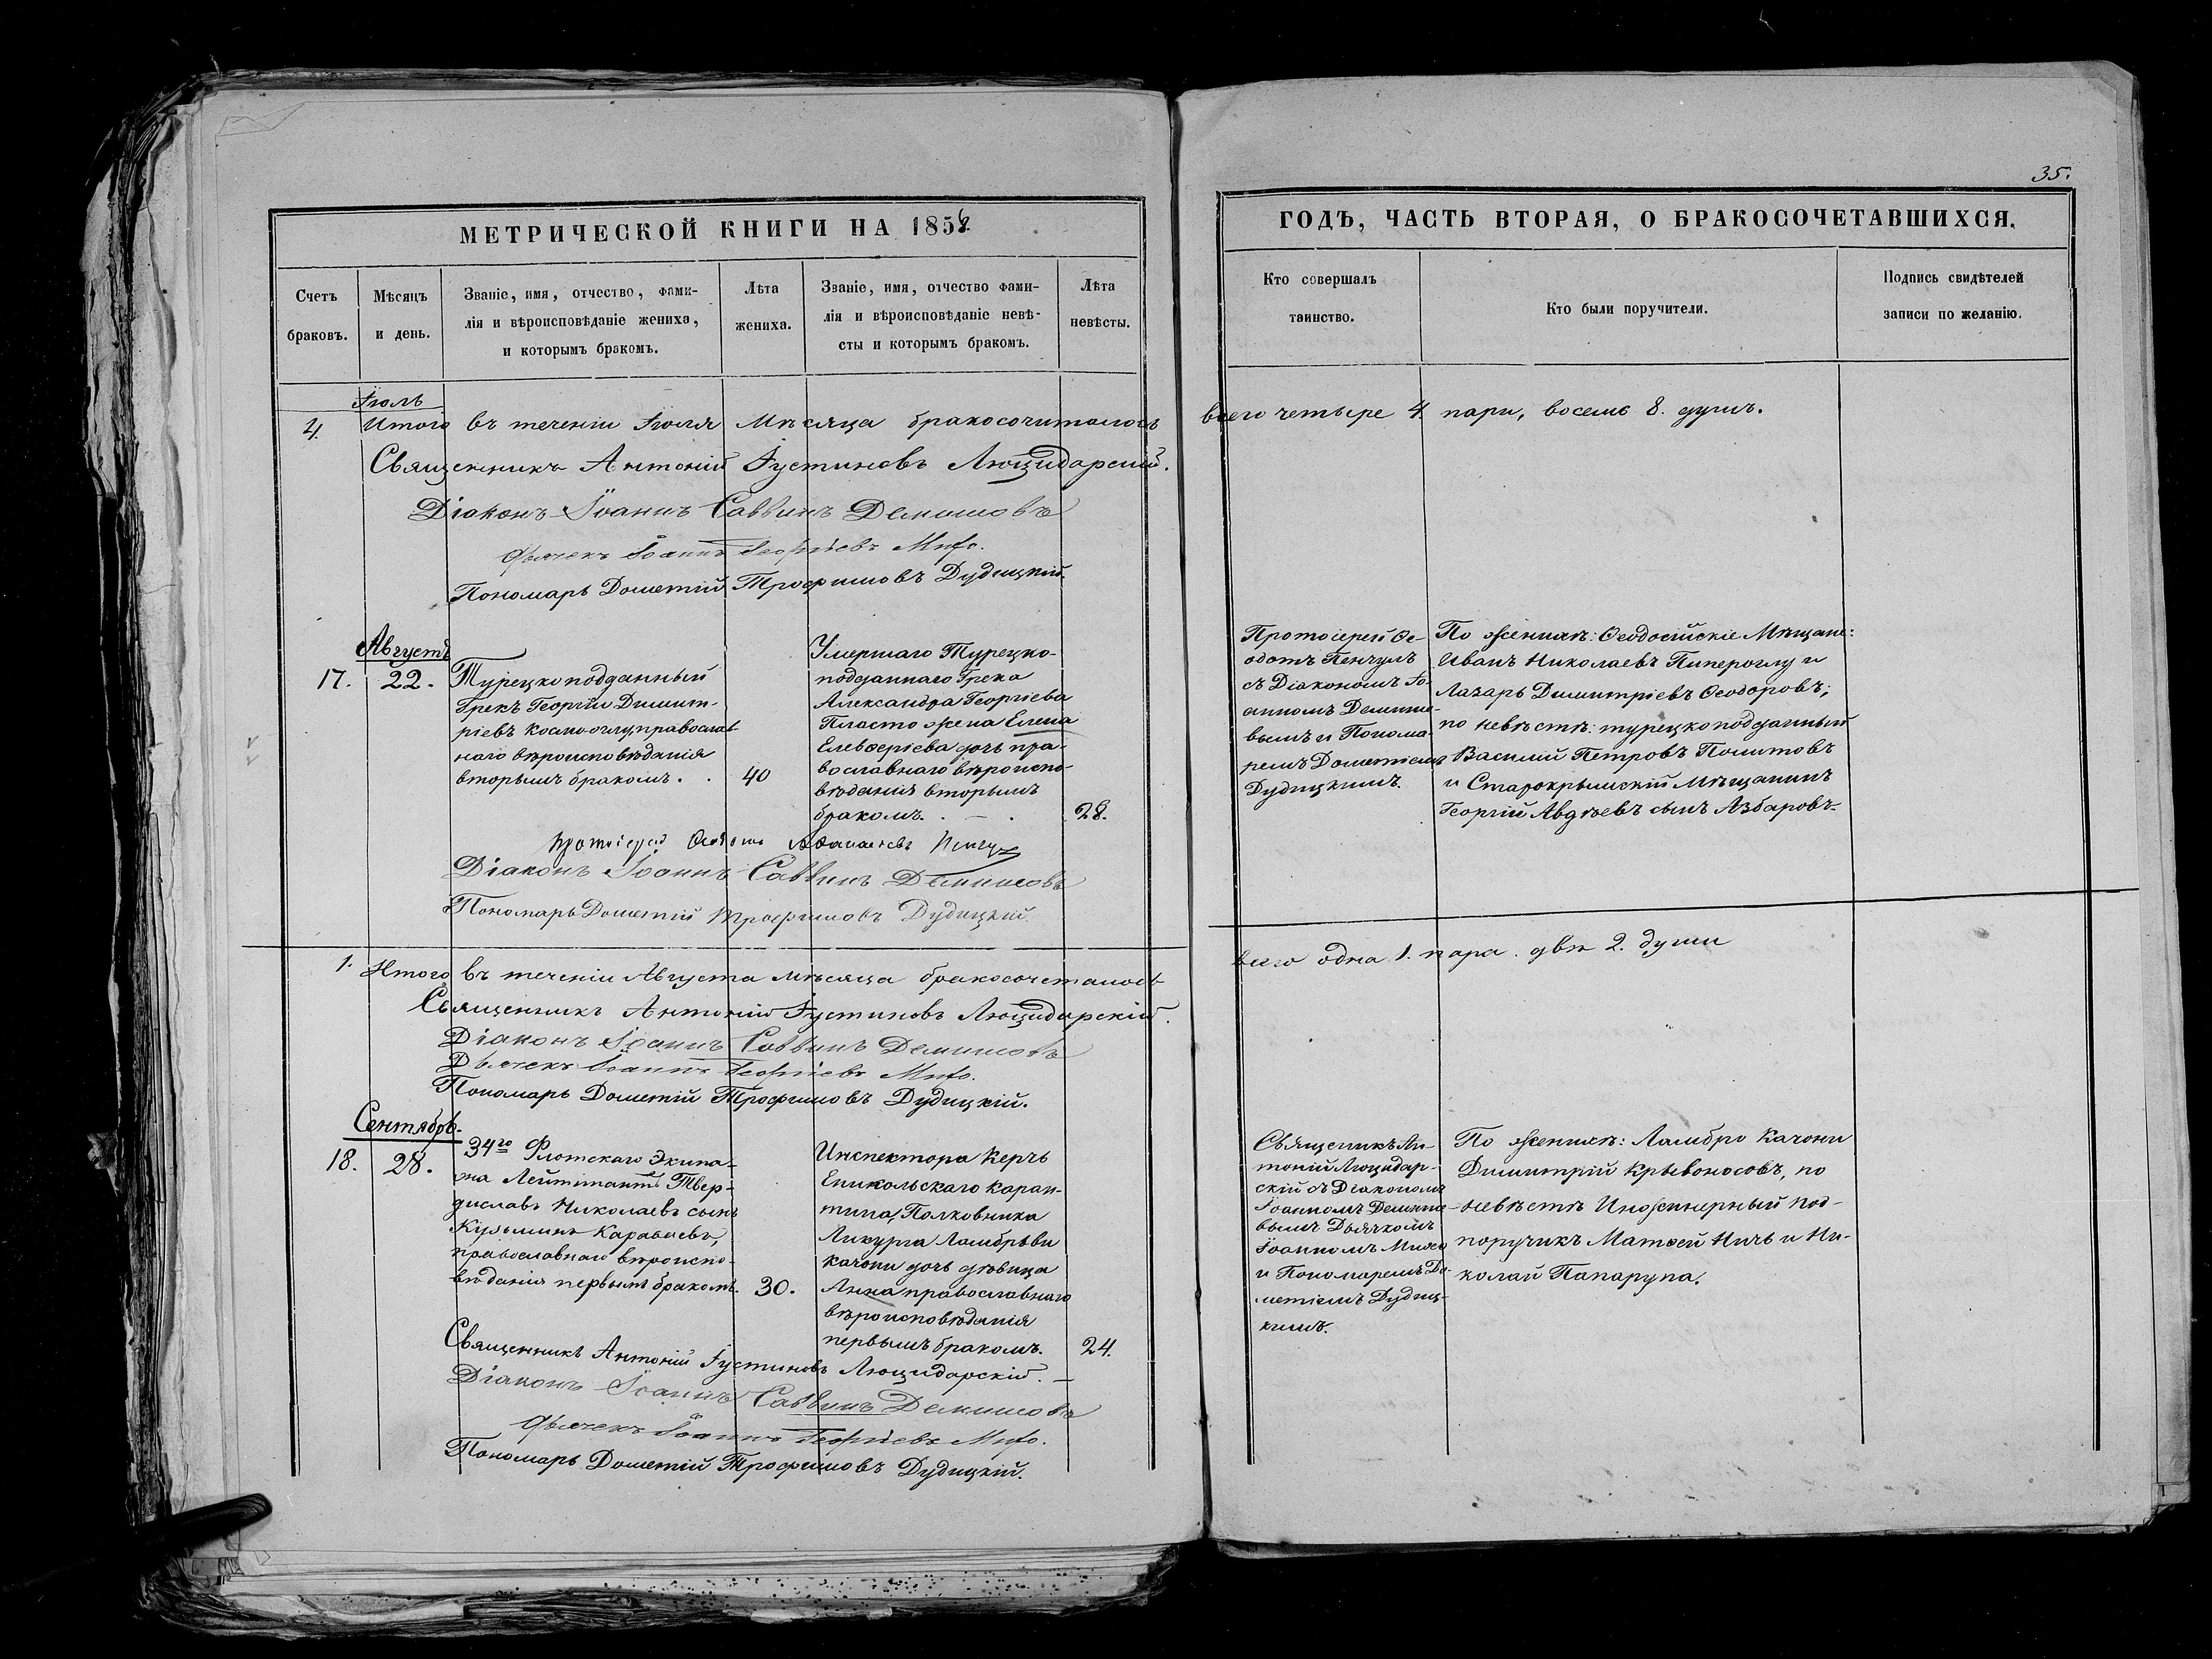 35.
МЕТРИЧЕСКОЙ КНИГИ НА 1858
ГОДЪ, ЧАСТЬ ВТОРАЯ, О БРАКОСОЧЕТАВШИХСЯ.
Счетъ
браковъ.
Мѣсяцъ
и день.
Званіе, имя, отчество, фами-
лія и вѣроисповѣданіе жениха,
и которымъ бракомъ.
Лѣта
жениха.
Званіе, имя, отчество фами-
лія и вѣроисповѣданіе невѣ-
сты и которымъ бракомъ.
Лѣта
невѣсты.
Кто совершалъ
таинство.
Кто были поручители.
Подпись свидѣтелей
записи по желанію.
Іюль
4. Итого въ теченіи Іюля Мѣсяца бракосочиталось
всего четыре 4. пари, восемь 8. душъ.
Священникъ Антоній Іустиновъ Люцидарскій.
Діаконъ Іоаннъ Саввинъ Демишовъ
Дьячекъ Іоаннъ Георгіевъ
Пономарь Дометій Трофимовъ Дудицкій.
Августъ
17. 22.
Турецкоподданный
Грекъ Георгій Димит-
ріевъ Космо-оглу, православ-
наго вѣроисповѣданія
вторымъ бракомъ.
40
Умершаго Турецко-
подданнаго Грека
Александра Георгіева
жена Елена
Елевѳеріева дочь пра-
вославнаго вѣроиспо-
вѣданія вторымъ
бракомъ.
28.
Протоіерей Ѳе-
одотъ Пенчулъ
съ Діакономъ Іо-
анномъ Демишо-
вымъ и Понома-
ремъ Дометіемъ
Дудицкимъ.
По женихѣ: Ѳеодосійскіе Мѣщане:
Иванъ Николаевъ Пипероглу и
Лазарь Димитріевъ Ѳеодоровъ;
по невѣстѣ: турецкоподданный
Василій Петровъ Политовъ
и Старокрымскій Мѣщанинъ
Георгій Авдѣевъ сынъ Азбаровъ.
Протоіерей Ѳеодотъ Аѳанасіевъ
Діаконъ Іоаннъ Саввинъ Демишовъ
Пономарь Дометій Трофимовъ Дудицкій.
1. Итого въ теченіи Августа мѣсяца бракосочеталось
всего одна 1. пара. двѣ 2. души
Священникъ Антоній Іустиновъ Люцидарскій.
Діаконъ Іоаннъ Саввинъ Демишовъ
Дьячекъ Іоаннъ Георгіевъ
Пономарь Дометій Трофимовъ Дудицкій.
Сентябрь.
18. 28.
34го Флотскаго Экипа-
жа Лейтенантъ Твер-
диславъ Николаевъ сынъ
Кузьминъ Караваевъ,
православнаго вѣроиспо-
вѣданія первымъ бракомъ.
30.
Инспектора Керчь
Еникольскаго Каран-
тина, Полковника
Ликурга Ламбрьви
Качони дочь дѣвица
Анна православнаго
вѣроисповѣданія
первымъ бракомъ.
24.
Священикъ Ан-
тоній Люцидар-
скій съ Діакономъ
Іоанномъ Демишо-
вымъ Дьячкомъ
Іоанномъ
и Пономаремъ До-
метіемъ Дудиц-
кимъ.
По женихѣ: Ламбро Качони
Димитрій Крывоносовъ, по
невѣстѣ Инженерный Под-
поручикъ Матвей Ничь и Ни-
колай Папарупа.
Священникъ Антоній Іустиновъ Люцидарскій.
Діаконъ Іоаннъ Саввинъ Демишовъ
Дьячекъ Іоаннъ Георгіевъ
Пономарь Дометій Трофимовъ Дудицкій.